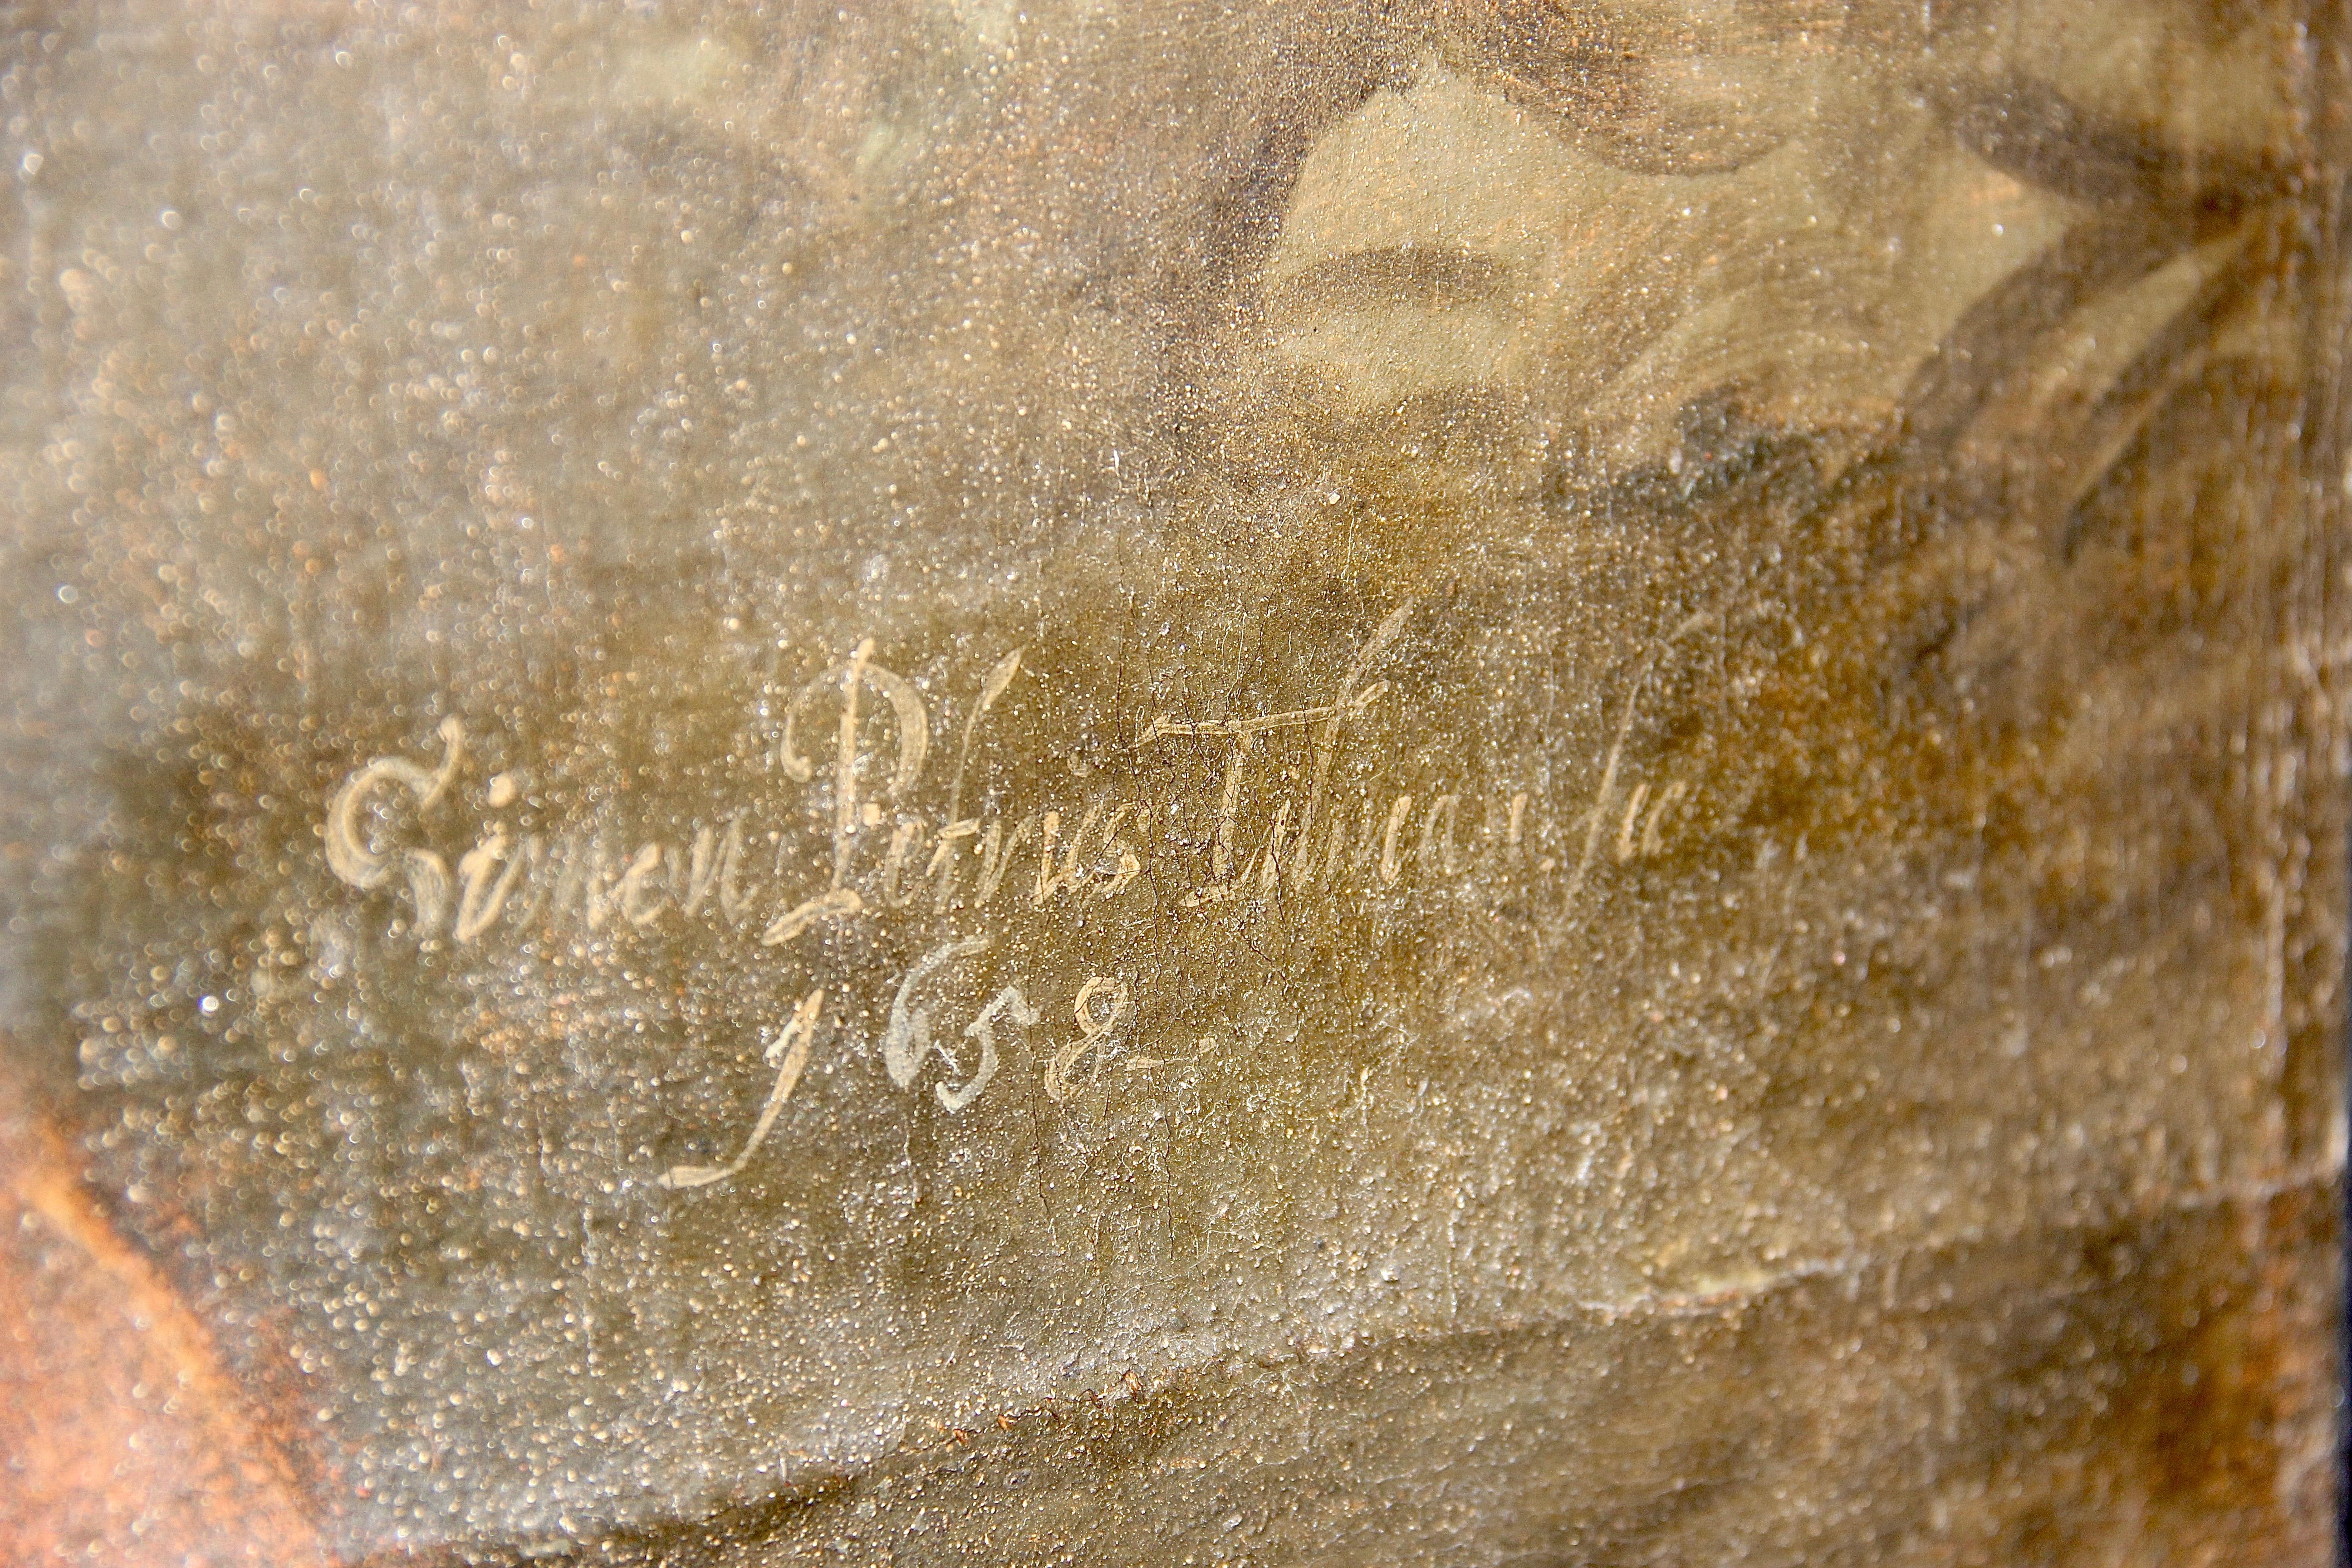 Simon Petrus Tilman. fe
1658.